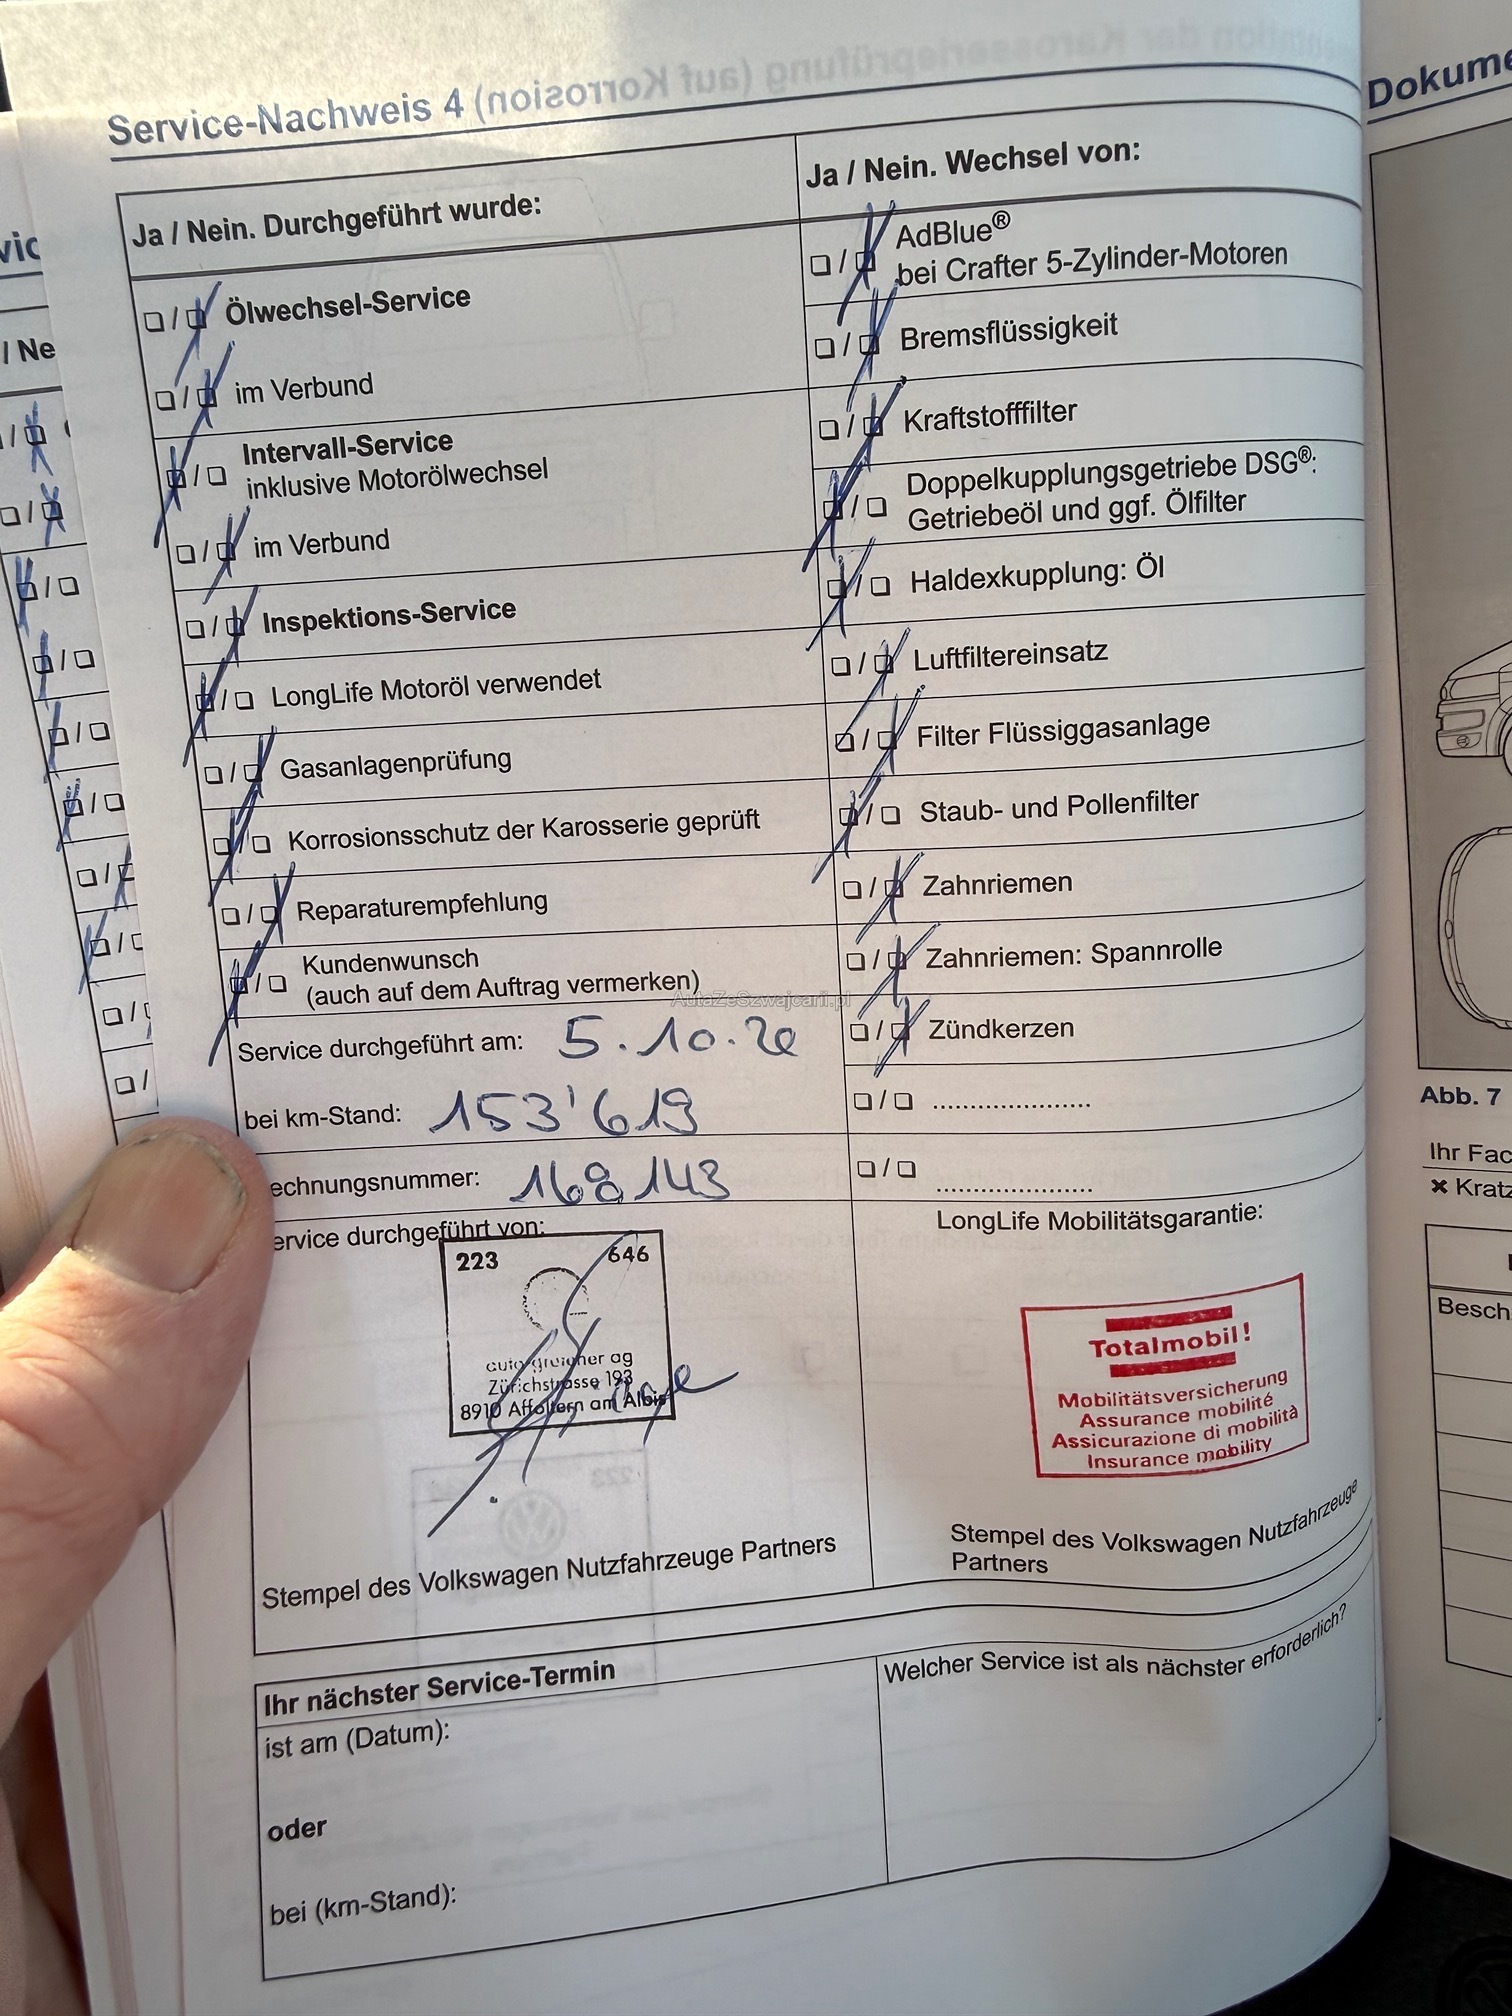 Service-Nachweis 4
Ja / Nein. Durchgeführt wurde:
Ölwechsel-Service
im Verbund
Intervall-Service
inklusive Motorölwechsel
im Verbund
Inspektions-Service
LongLife Motoröl verwendet
Gasanlagenprüfung
Korrosionsschutz der Karosserie geprüft
Reparaturempfehlung
Kundenwunsch
(auch auf dem Auftrag vermerken)
Service durchgeführt am: 5.10.20
bei km-Stand: 153'619
echnungsnummer: 168143
ervice durchgeführt von:
223 646
auto greicher ag
Zürichstrasse 193
8910 Affoltern am Albis
Stempel des Volkswagen Nutzfahrzeuge Partners
Ja / Nein. Wechsel von:
AdBlue®
bei Crafter 5-Zylinder-Motoren
Bremsflüssigkeit
Kraftstofffilter
Doppelkupplungsgetriebe DSG®:
Getriebeöl und ggf. Ölfilter
Haldexkupplung: Öl
Luftfiltereinsatz
Filter Flüssiggasanlage
Staub- und Pollenfilter
Zahnriemen
Zahnriemen: Spannrolle
Zündkerzen
LongLife Mobilitätsgarantie:
Totalmobil!
Mobilitätsversicherung
Assurance mobilité
Assicurazione di mobilità
Insurance mobility
Stempel des Volkswagen Nutzfahrzeuge
Partners
Ihr nächster Service-Termin
ist am (Datum):
oder
bei (km-Stand):
Welcher Service ist als nächster erforderlich?
AutaZeSzwajcarii.pl
/ Ne
Dokume
Abb. 7
Ihr Fac
✖ Kratz
Besch